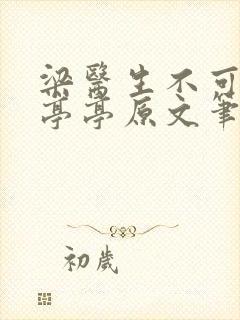 梁醫生不可
亭亭原文筆
初歲